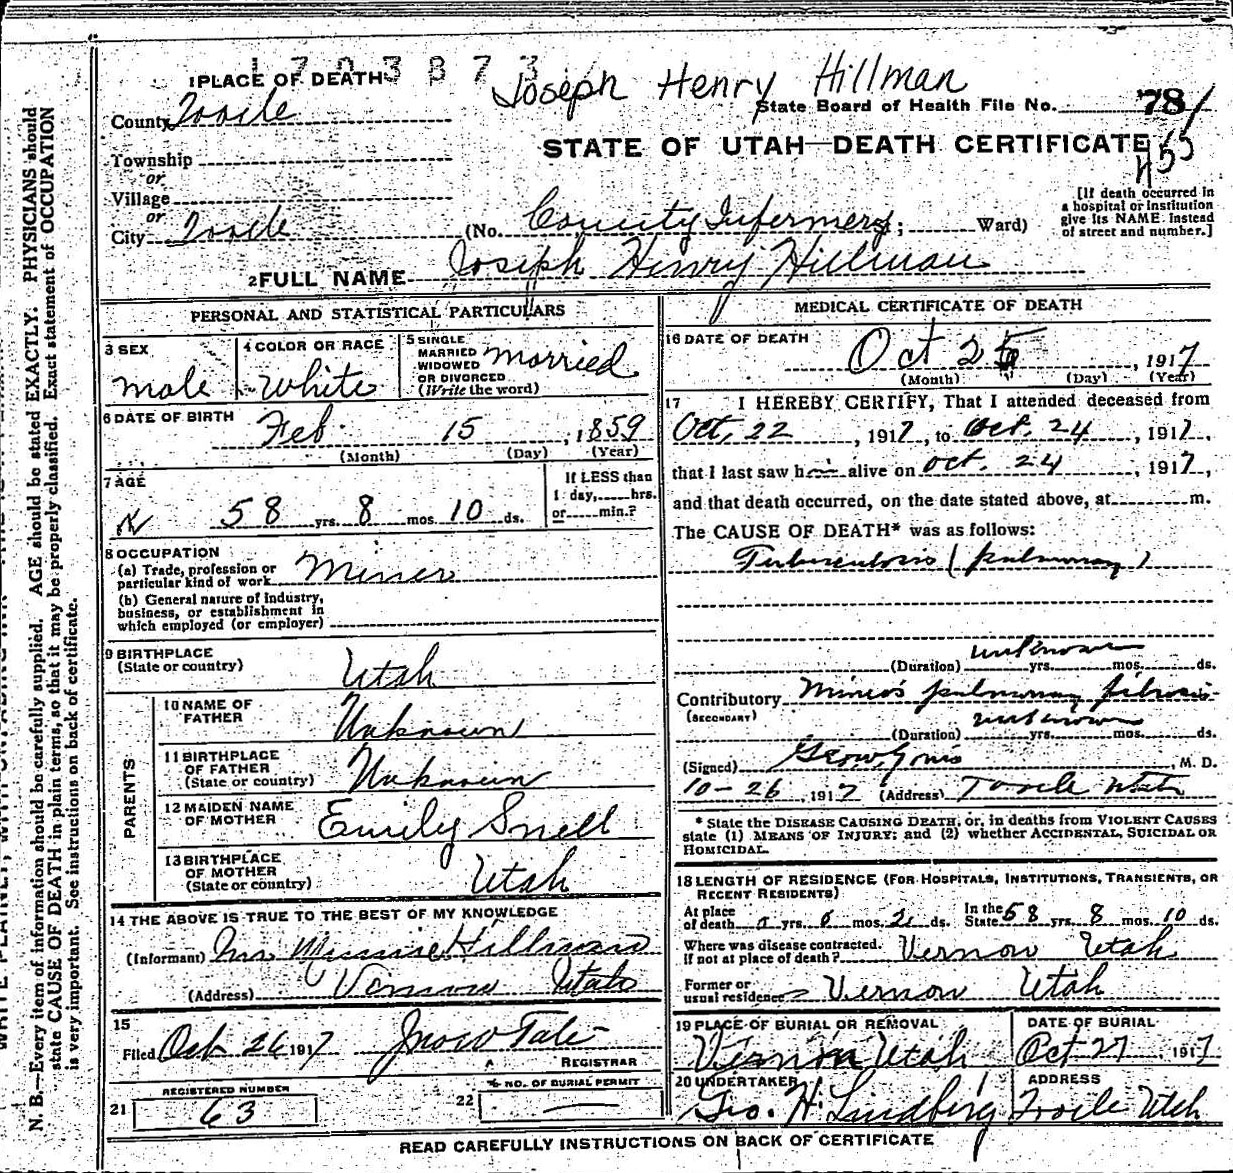 1703873
Joseph Henry Hillman
1 PLACE OF DEATH
State Board of Health File No. 781
County Tooele
H55
STATE OF UTAH—DEATH CERTIFICATE
Township
or
Village
or
City Tooele (No. County Infermery St; Ward)
[If death occurred in
a hospital or institution
give its NAME instead
of street and number.]
2 FULL NAME Joseph Henry Hillman
PERSONAL AND STATISTICAL PARTICULARS
3 SEX
male
4 COLOR OR RACE
White
5 SINGLE
MARRIED
WIDOWED
OR DIVORCED
(Write the word)
married
6 DATE OF BIRTH
Feb. 15, 1859
(Month) (Day) (Year)
7 AGE
58 yrs. 8 mos. 10 ds.
If LESS than
1 day, hrs.
or min.?
8 OCCUPATION
(a) Trade, profession or
particular kind of work Miner
(b) General nature of Industry,
business, or establishment in
which employed (or employer)
9 BIRTHPLACE
(State or country)
Utah
PARENTS
10 NAME OF
FATHER
Unknown
11 BIRTHPLACE
OF FATHER
(State or country)
Unknown
12 MAIDEN NAME
OF MOTHER
Emily Snell
13 BIRTHPLACE
OF MOTHER
(State or country)
Utah
14 THE ABOVE IS TRUE TO THE BEST OF MY KNOWLEDGE
(Informant) Mrs Minnie Hillman
(Address) Vernon Utah
15
Filed Oct 26 1917
REGISTRAR
REGISTERED NUMBER
21 63
% NO. OF BURIAL PERMIT
22
MEDICAL CERTIFICATE OF DEATH
16 DATE OF DEATH
Oct 25, 1917
(Month) (Day) (Year)
17 I HEREBY CERTIFY, That I attended deceased from
Oct. 22, 1917, to Oct. 24, 1917,
that I last saw him alive on Oct. 24, 1917,
and that death occurred, on the date stated above, at m.
The CAUSE OF DEATH* was as follows:
Tuberculosis (pulmonary)
unknown
(Duration) yrs. mos. ds.
Contributory Miner's pulmonary fibrosis
(SECONDARY)
unknown
(Duration) yrs. mos. ds.
(Signed) , M. D.
10-26, 1917 (Address) Tooele Utah
* State the DISEASE CAUSING DEATH, or, in deaths from VIOLENT CAUSES
state (1) MEANS OF INJURY; and (2) whether ACCIDENTAL, SUICIDAL OR
HOMICIDAL.
18 LENGTH OF RESIDENCE (FOR HOSPITALS, INSTITUTIONS, TRANSIENTS, OR
RECENT RESIDENTS)
At place
of death 0 yrs. 0 mos. 21 ds.
In the
State 58 yrs. 8 mos. 10 ds.
Where was disease contracted.
If not at place of death? Vernon Utah
Former or
usual residence Vernon Utah
19 PLACE OF BURIAL OR REMOVAL
Vernon Utah
DATE OF BURIAL
Oct 27, 1917
20 UNDERTAKER
Geo. H. Lindberg
ADDRESS
Tooele Utah
READ CAREFULLY INSTRUCTIONS ON BACK OF CERTIFICATE
N. B.—Every item of information should be carefully supplied. AGE should be stated EXACTLY. PHYSICIANS should
state CAUSE OF DEATH in plain terms, so that it may be properly classified. Exact statement of OCCUPATION
is very important. See instructions on back of certificate.